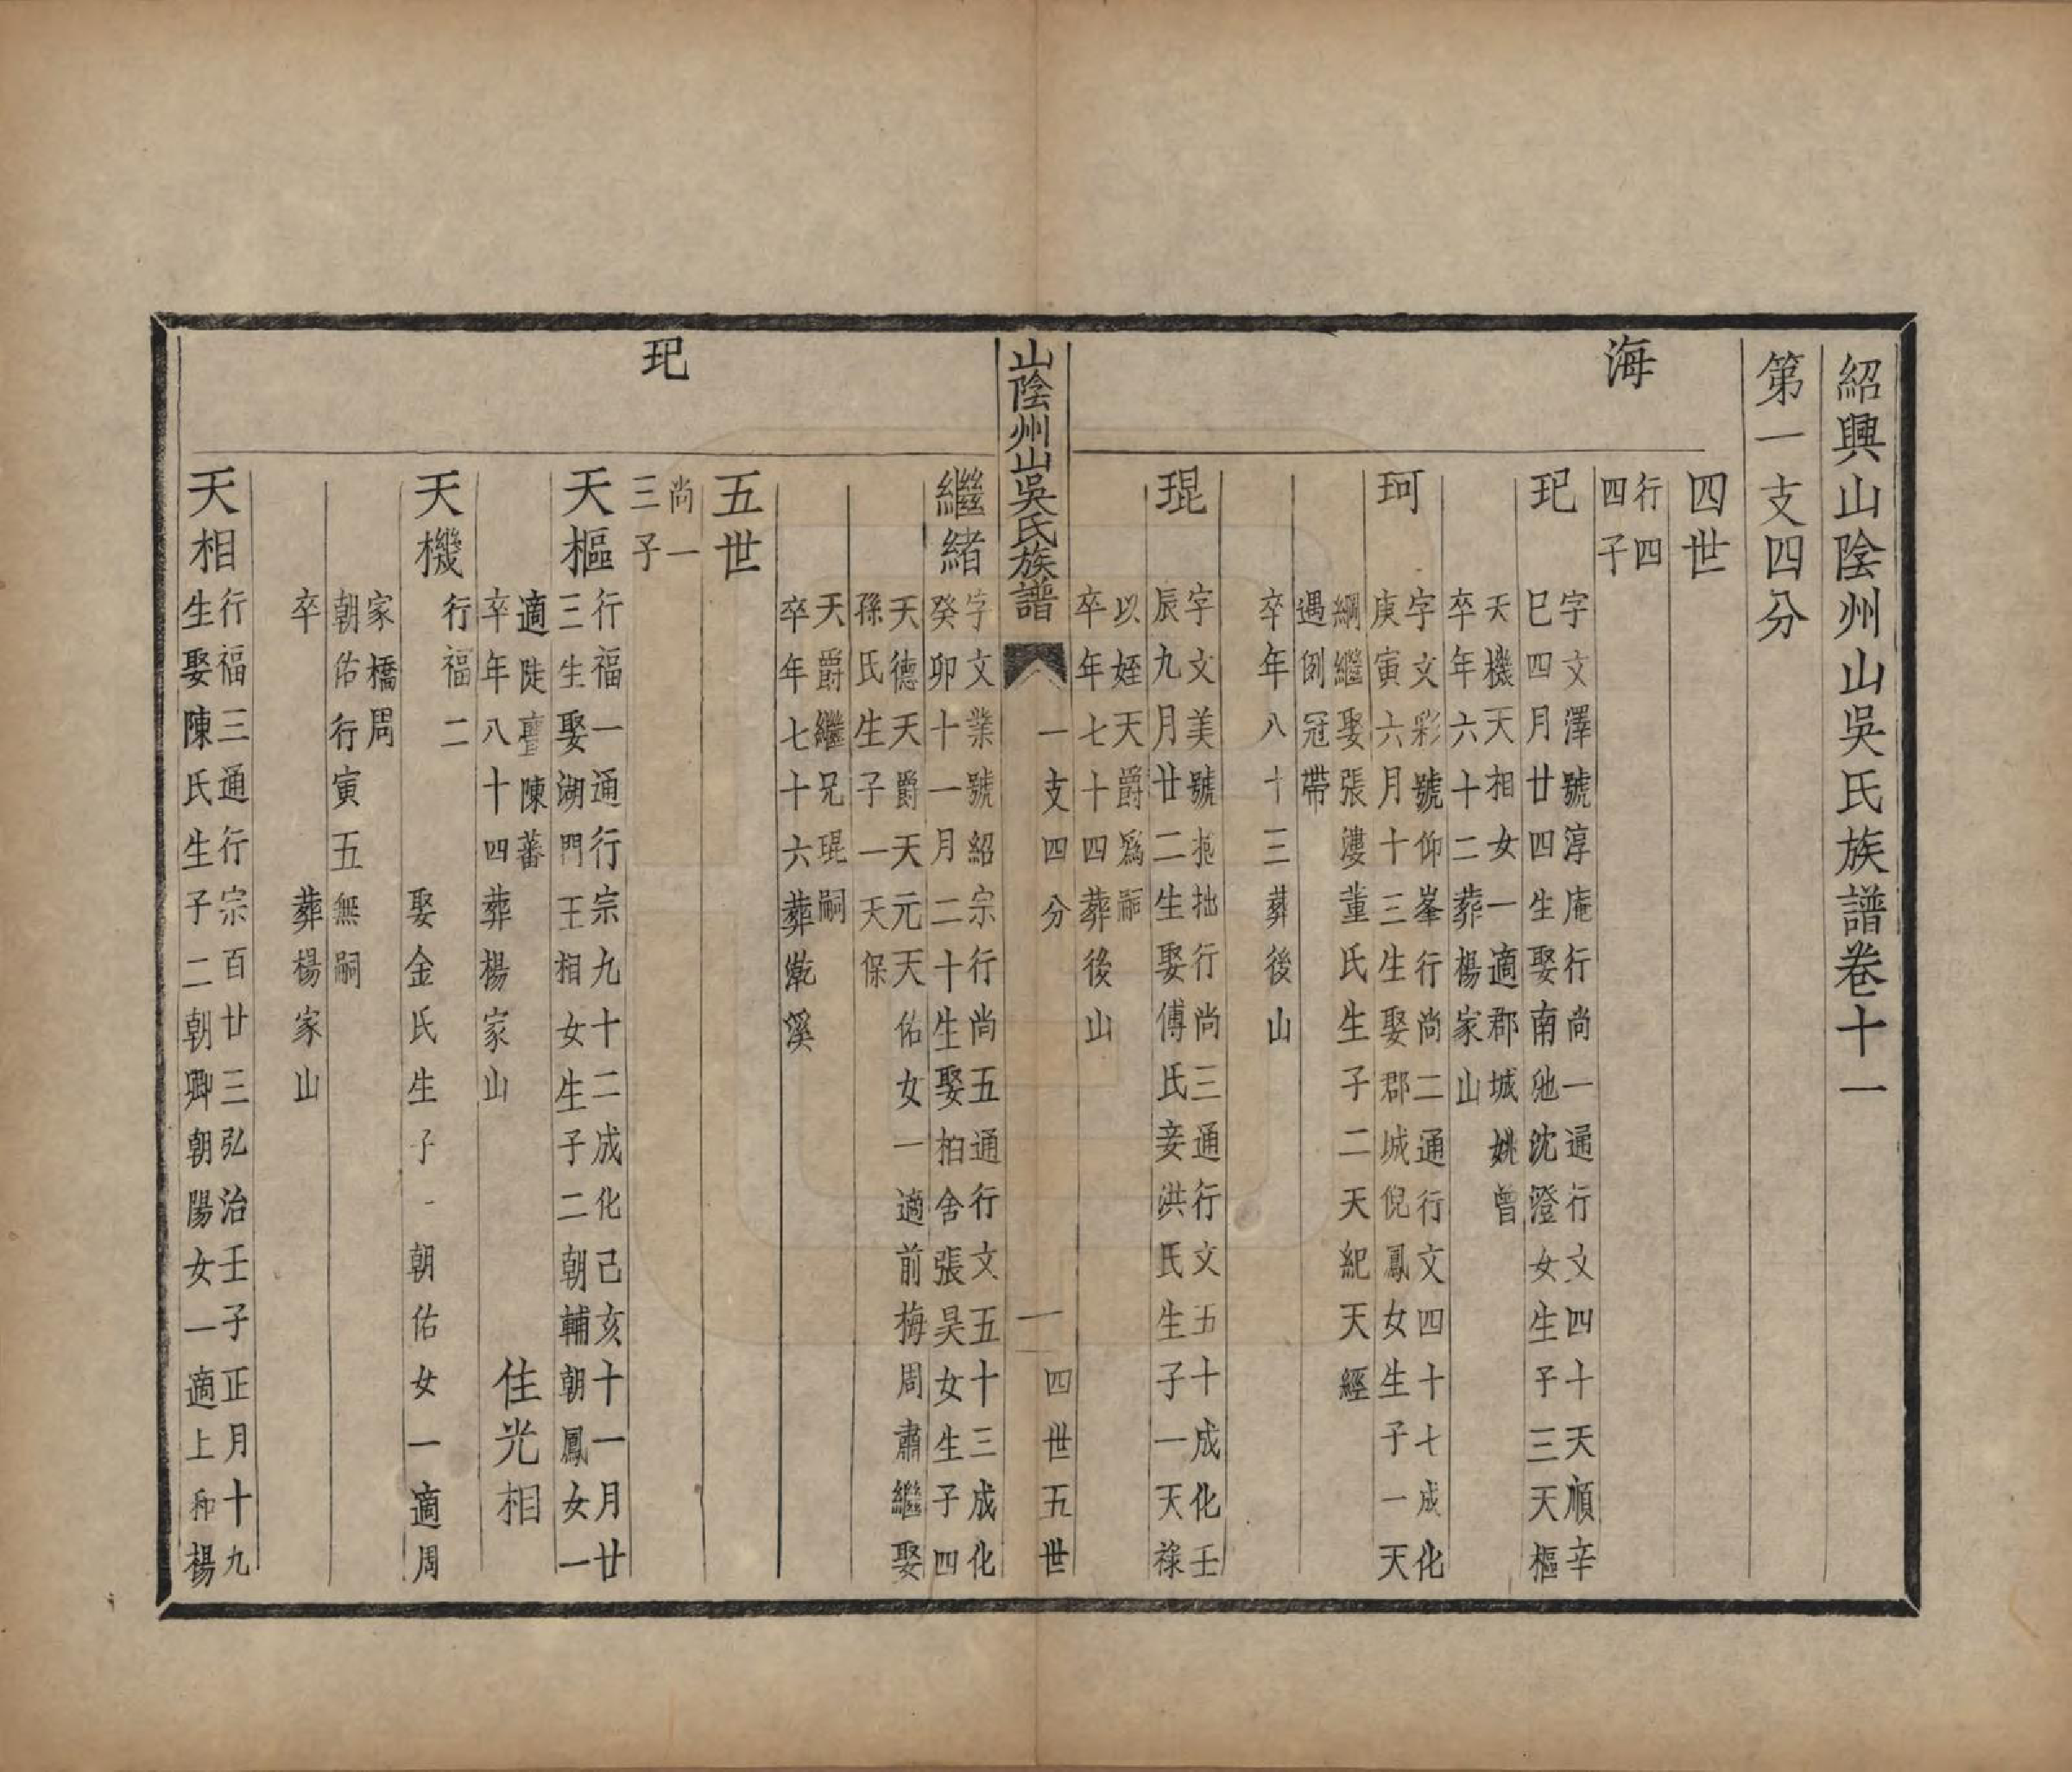 紹興山陰州山吳氏族譜卷十一
第一支四分
四世
海
行四
四子
玘
字文澤號淳庵行尚一通行文四十天順辛
巳四月廿四生娶南池沈澄女生子三天樞
天機天相女一適郡城姚曾
卒年六十二葬楊家山
珂
字文彩號仰峯行尚二通行文四十七成化
庚寅六月十三生娶郡城倪鳳女生子一天
綱繼娶張漊董氏生子二天紀天經
遇例冠帶
卒年八十三葬後山
琨
字文美號抱拙行尚三通行文五十成化壬
辰九月廿二生娶傅氏妾洪氏生子一天祿
以姪天爵爲嗣
卒年七十四葬後山
山陰州山吳氏族譜
一支四分
一
四世五世
繼緒
字文業號紹宗行尚五通行文五十三成化
癸卯十一月二十生娶柏舍張昊女生子四
天德天爵天元天佑女一適前梅周肅繼娶
孫氏生子一天保
天爵繼兄琨嗣
卒年七十六葬乾溪
五世
玘
尚一
三子
天樞
行福一通行宗九十二成化己亥十一月廿
三生娶湖門王相女生子二朝輔朝鳳女一
適陡亹陳蕃
卒年八十四葬楊家山
住光相
天機
行福二
娶金氏生子一朝佑女一適周
家橋周
朝佑行寅五無嗣
卒
葬楊家山
天相
行福三通行宗百廿三弘治壬子正月十九
生娶陳氏生子二朝卿朝陽女一適上和楊